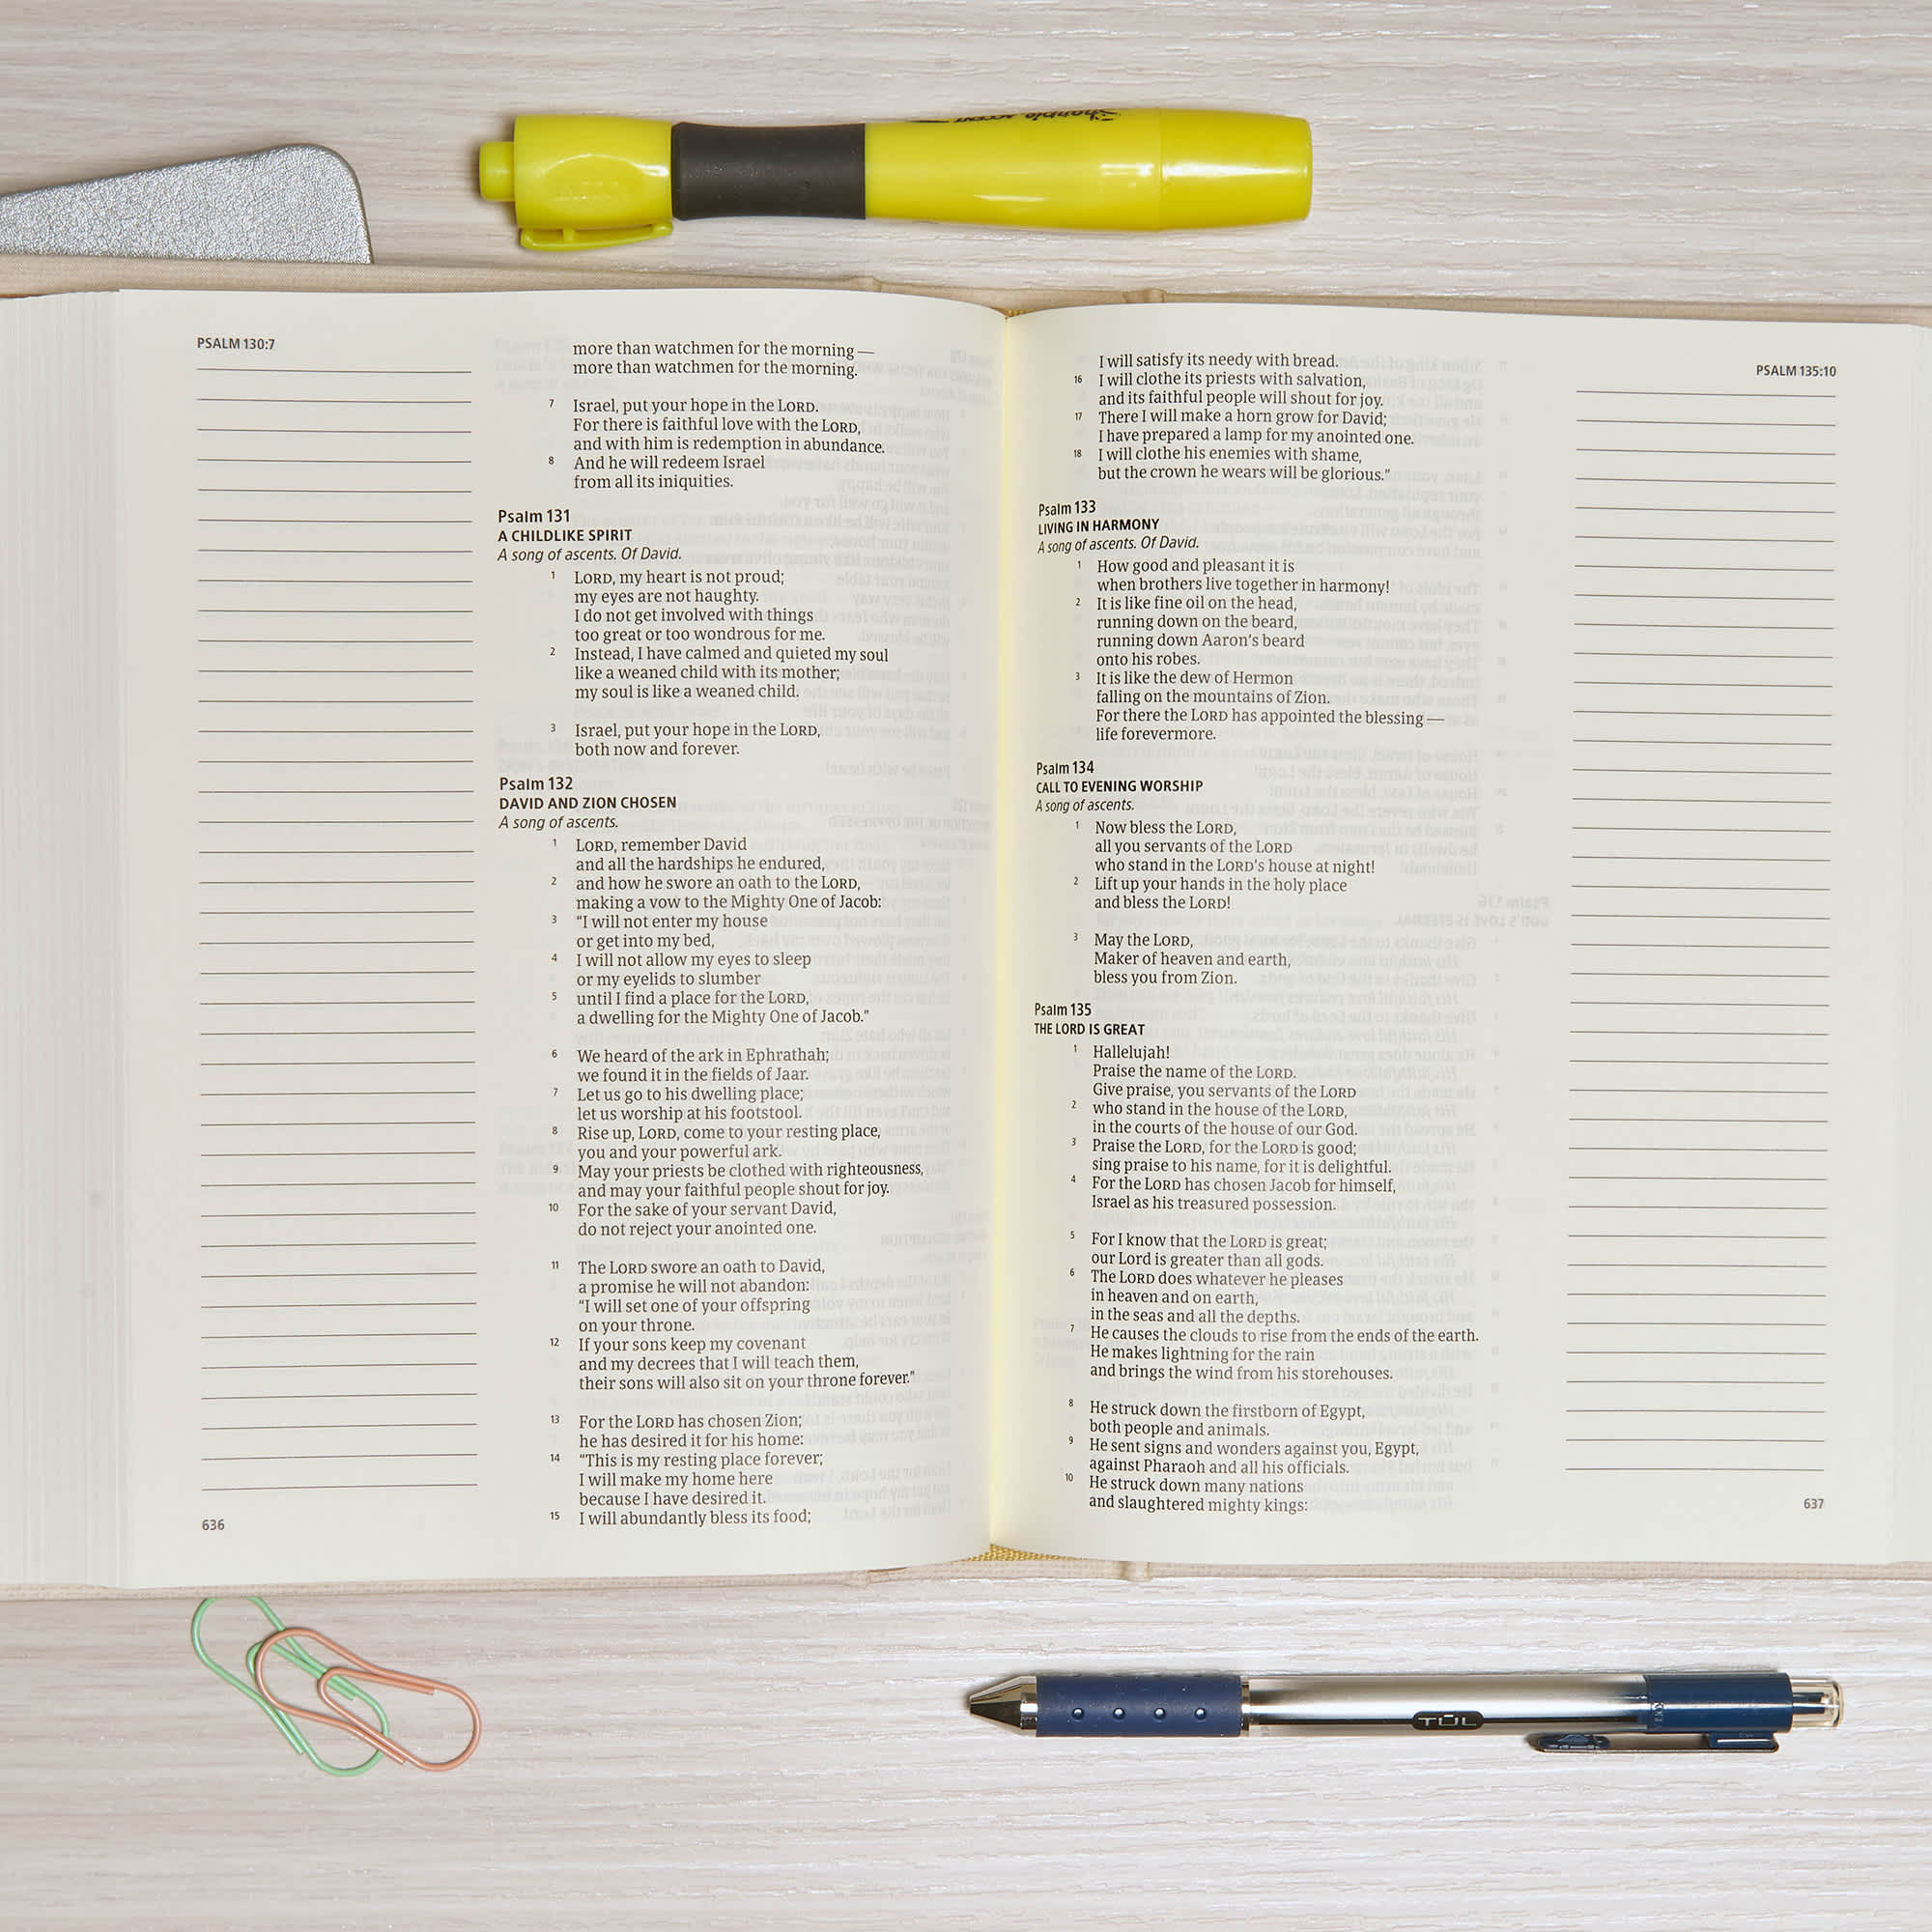 Sharpie ACCENT
PSALM 130:7
more than watchmen for the morning —
more than watchmen for the morning.
7 Israel, put your hope in the LORD.
For there is faithful love with the LORD,
and with him is redemption in abundance.
8 And he will redeem Israel
from all its iniquities.
Psalm 131
A CHILDLIKE SPIRIT
A song of ascents. Of David.
1 LORD, my heart is not proud;
my eyes are not haughty.
I do not get involved with things
too great or too wondrous for me.
2 Instead, I have calmed and quieted my soul
like a weaned child with its mother;
my soul is like a weaned child.
3 Israel, put your hope in the LORD,
both now and forever.
Psalm 132
DAVID AND ZION CHOSEN
A song of ascents.
1 LORD, remember David
and all the hardships he endured,
2 and how he swore an oath to the LORD,
making a vow to the Mighty One of Jacob:
3 “I will not enter my house
or get into my bed,
4 I will not allow my eyes to sleep
or my eyelids to slumber
5 until I find a place for the LORD,
a dwelling for the Mighty One of Jacob.”
6 We heard of the ark in Ephrathah;
we found it in the fields of Jaar.
7 Let us go to his dwelling place;
let us worship at his footstool.
8 Rise up, LORD, come to your resting place,
you and your powerful ark.
9 May your priests be clothed with righteousness,
and may your faithful people shout for joy.
10 For the sake of your servant David,
do not reject your anointed one.
11 The LORD swore an oath to David,
a promise he will not abandon:
“I will set one of your offspring
on your throne.
12 If your sons keep my covenant
and my decrees that I will teach them,
their sons will also sit on your throne forever.”
13 For the LORD has chosen Zion;
he has desired it for his home:
14 “This is my resting place forever;
I will make my home here
because I have desired it.
15 I will abundantly bless its food;
636
PSALM 135:10
I will satisfy its needy with bread.
16 I will clothe its priests with salvation,
and its faithful people will shout for joy.
17 There I will make a horn grow for David;
I have prepared a lamp for my anointed one.
18 I will clothe his enemies with shame,
but the crown he wears will be glorious.”
Psalm 133
LIVING IN HARMONY
A song of ascents. Of David.
1 How good and pleasant it is
when brothers live together in harmony!
2 It is like fine oil on the head,
running down on the beard,
running down Aaron’s beard
onto his robes.
3 It is like the dew of Hermon
falling on the mountains of Zion.
For there the LORD has appointed the blessing —
life forevermore.
Psalm 134
CALL TO EVENING WORSHIP
A song of ascents.
1 Now bless the LORD,
all you servants of the LORD
who stand in the LORD’s house at night!
2 Lift up your hands in the holy place
and bless the LORD!
3 May the LORD,
Maker of heaven and earth,
bless you from Zion.
Psalm 135
THE LORD IS GREAT
1 Hallelujah!
Praise the name of the LORD.
Give praise, you servants of the LORD
2 who stand in the house of the LORD,
in the courts of the house of our God.
3 Praise the LORD, for the LORD is good;
sing praise to his name, for it is delightful.
4 For the LORD has chosen Jacob for himself,
Israel as his treasured possession.
5 For I know that the LORD is great;
our Lord is greater than all gods.
6 The LORD does whatever he pleases
in heaven and on earth,
in the seas and all the depths.
7 He causes the clouds to rise from the ends of the earth.
He makes lightning for the rain
and brings the wind from his storehouses.
8 He struck down the firstborn of Egypt,
both people and animals.
9 He sent signs and wonders against you, Egypt,
against Pharaoh and all his officials.
10 He struck down many nations
and slaughtered mighty kings:
637
TUL